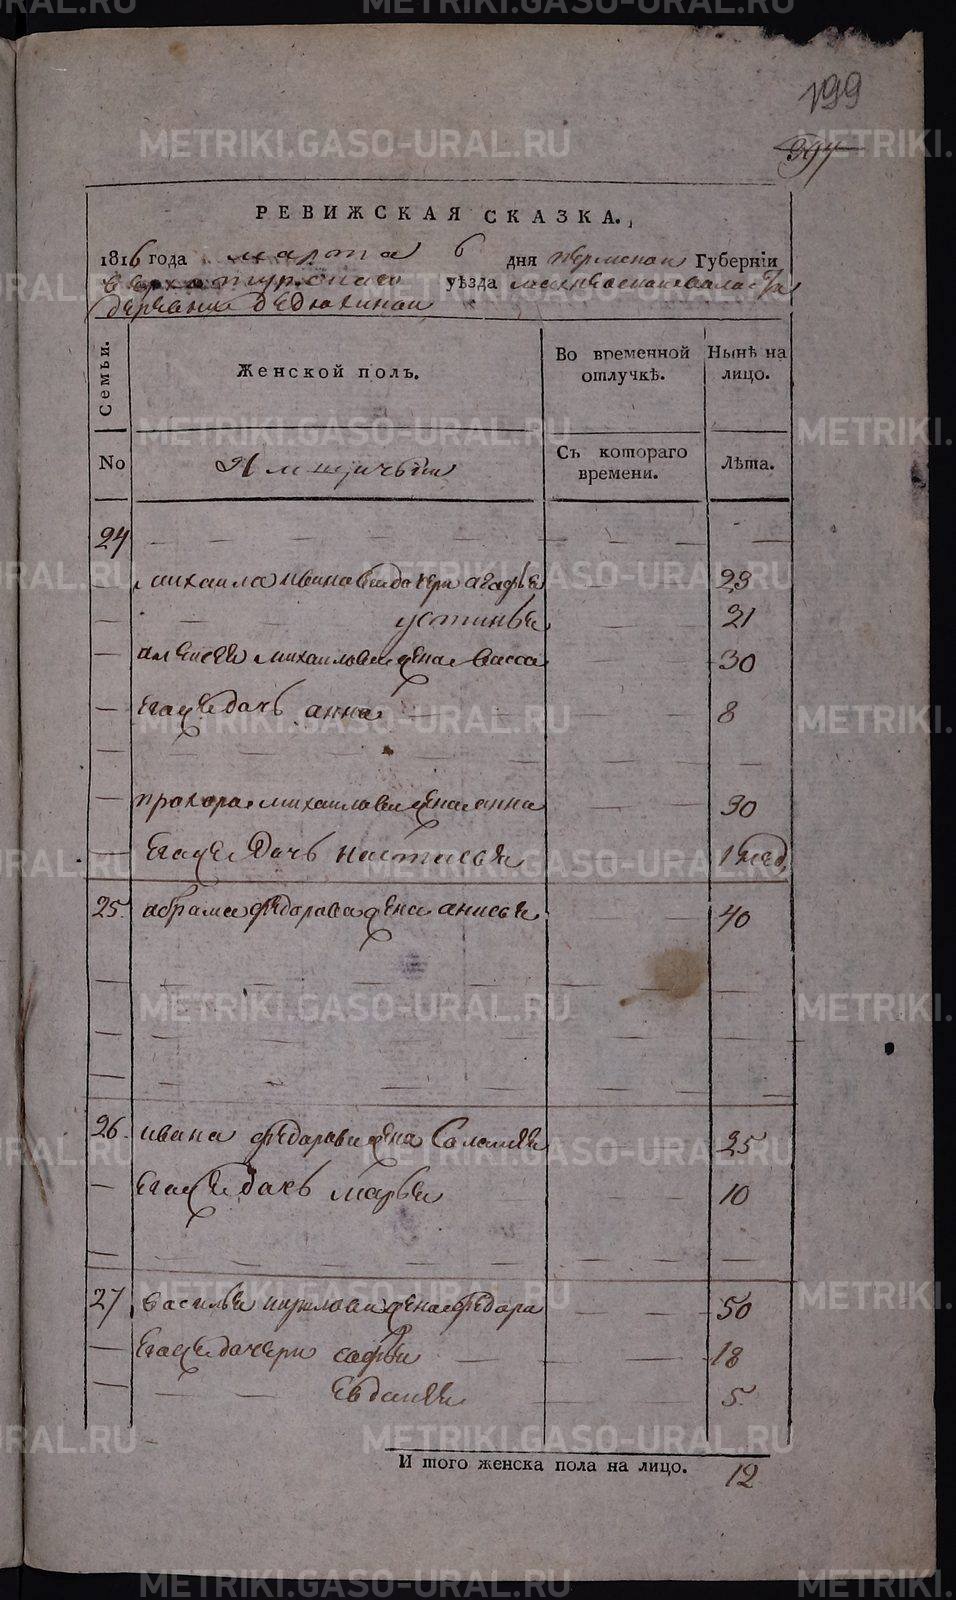 METRIKI.GASO-URAL.RU
199
397
РЕВИЖСКАЯ СКАЗКА.
1816 года марта 6 дня пермской Губерніи
верхотурскаго уѣзда
деревни дедюхиной
Семьи.
Женской полъ.
Во временной отлучкѣ.
Нынѣ на лицо.
No
Ямщичьи
Съ котораго времени.
Лѣта.
24
михаила иванова дочери агафья 23
устинья 21
алексея михайлова жена васса 30
егоже дочь анна 8
прохора михайлова жена анна 30
егоже дочь настасья 1 нед
25. абрама федарава жена анисья 40
26. ивана федарава жена Саламея 25
егоже дочь марья 10
27 василья кирилова жена федора 50
егоже дочери сафья 18
евдакея 5
И того женска пола на лицо. 12